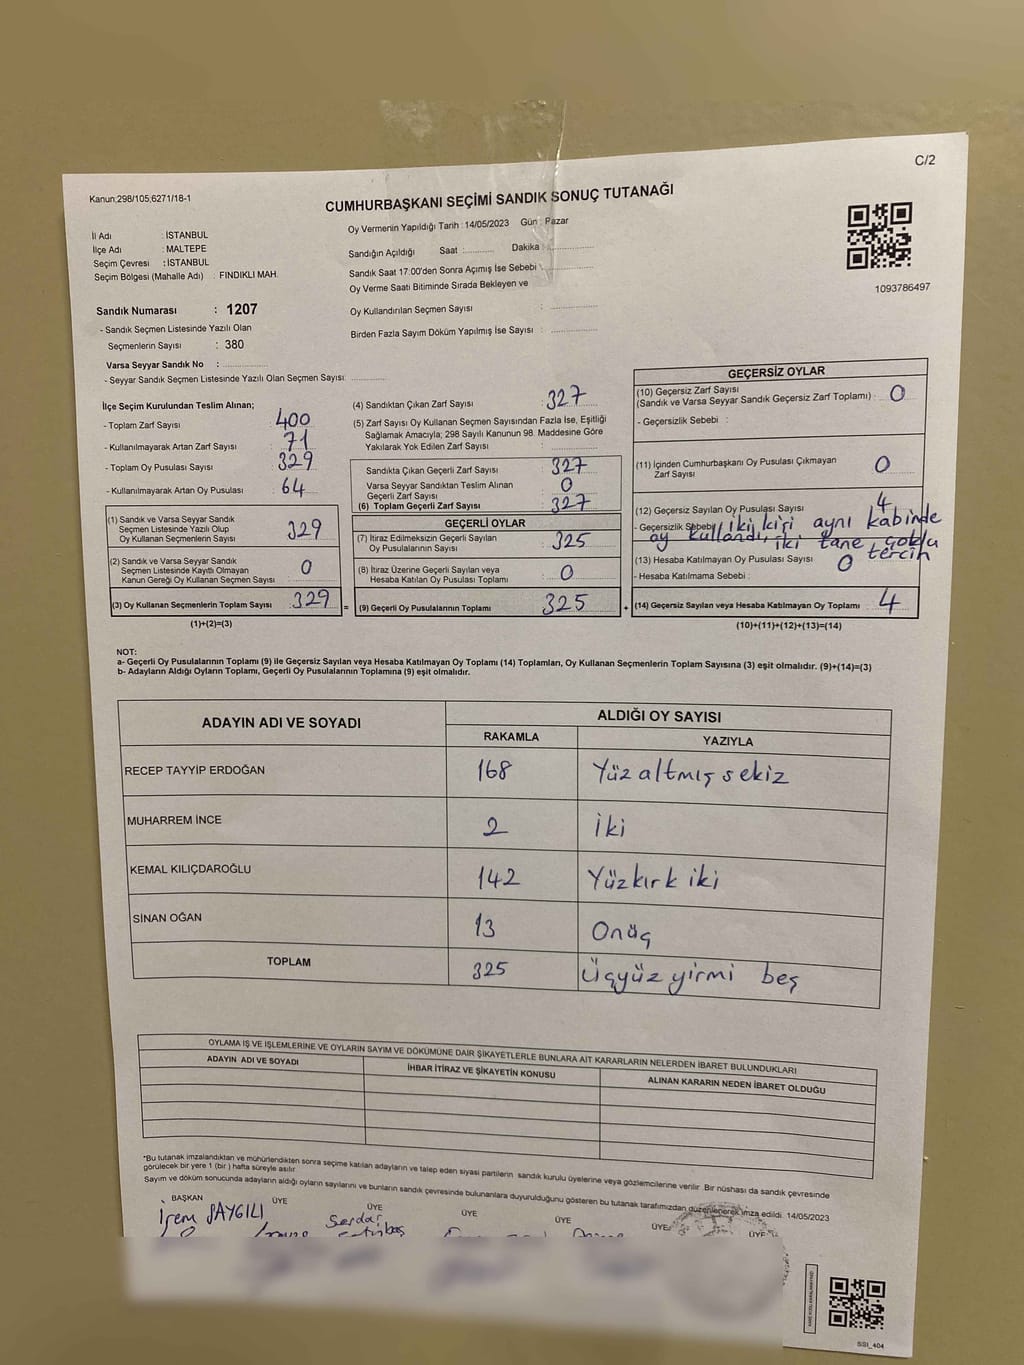 C/2
Kanun;298/105;6271/18-1
CUMHURBAŞKANI SEÇİMİ SANDIK SONUÇ TUTANAĞI
İl Adı : İSTANBUL
İlçe Adı : MALTEPE
Seçim Çevresi : İSTANBUL
Seçim Bölgesi (Mahalle Adı) : FINDIKLI MAH.
Sandık Numarası : 1207
- Sandık Seçmen Listesinde Yazılı Olan
Seçmenlerin Sayısı : 380
Varsa Seyyar Sandık No :
- Seyyar Sandık Seçmen Listesinde Yazılı Olan Seçmen Sayısı:
Oy Vermenin Yapıldığı Tarih : 14/05/2023 Gün : Pazar
Sandığın Açıldığı Saat : Dakika :
Sandık Saat 17:00'den Sonra Açımış İse Sebebi :
Oy Verme Saati Bitiminde Sırada Bekleyen ve
Oy Kullandırılan Seçmen Sayısı :
Birden Fazla Sayım Döküm Yapılmış İse Sayısı :
1093786497
İlçe Seçim Kurulundan Teslim Alınan;
- Toplam Zarf Sayısı : 400
- Kullanılmayarak Artan Zarf Sayısı : 71
- Toplam Oy Pusulası Sayısı : 329
- Kullanılmayarak Artan Oy Pusulası : 64
(1) Sandık ve Varsa Seyyar Sandık
Seçmen Listesinde Yazılı Olup
Oy Kullanan Seçmenlerin Sayısı : 329
(2) Sandık ve Varsa Seyyar Sandık
Seçmen Listesinde Kayıtlı Olmayan
Kanun Gereği Oy Kullanan Seçmen Sayısı : 0
(3) Oy Kullanan Seçmenlerin Toplam Sayısı : 329 =
(1)+(2)=(3)
(4) Sandıktan Çıkan Zarf Sayısı : 327
(5) Zarf Sayısı Oy Kullanan Seçmen Sayısından Fazla İse, Eşitliği
Sağlamak Amacıyla; 298 Sayılı Kanunun 98. Maddesine Göre
Yakılarak Yok Edilen Zarf Sayısı :
Sandıkta Çıkan Geçerli Zarf Sayısı : 327
Varsa Seyyar Sandıktan Teslim Alınan
Geçerli Zarf Sayısı : 0
(6) Toplam Geçerli Zarf Sayısı : 327
GEÇERLİ OYLAR
(7) İtiraz Edilmeksizin Geçerli Sayılan
Oy Pusulalarının Sayısı : 325
(8) İtiraz Üzerine Geçerli Sayılan veya
Hesaba Katılan Oy Pusulası Toplamı : 0
(9) Geçerli Oy Pusulalarının Toplamı : 325 +
GEÇERSİZ OYLAR
(10) Geçersiz Zarf Sayısı
(Sandık ve Varsa Seyyar Sandık Geçersiz Zarf Toplamı) : 0
- Geçersizlik Sebebi :
(11) İçinden Cumhurbaşkanı Oy Pusulası Çıkmayan
Zarf Sayısı : 0
(12) Geçersiz Sayılan Oy Pusulası Sayısı : 4
- Geçersizlik Sebebi : iki kişi aynı kabinde
oy kullandı, iki tane çoklu
tercih
(13) Hesaba Katılmayan Oy Pusulası Sayısı : 0
- Hesaba Katılmama Sebebi :
(14) Geçersiz Sayılan veya Hesaba Katılmayan Oy Toplamı : 4
(10)+(11)+(12)+(13)=(14)
NOT:
a- Geçerli Oy Pusulalarının Toplamı (9) ile Geçersiz Sayılan veya Hesaba Katılmayan Oy Toplamı (14) Toplamları, Oy Kullanan Seçmenlerin Toplam Sayısına (3) eşit olmalıdır. (9)+(14)=(3)
b- Adayların Aldığı Oyların Toplamı, Geçerli Oy Pusulalarının Toplamına (9) eşit olmalıdır.
ADAYIN ADI VE SOYADI ALDIĞI OY SAYISI
RAKAMLA YAZIYLA
RECEP TAYYİP ERDOĞAN 168 Yüz altmış sekiz
MUHARREM İNCE 2 İki
KEMAL KILIÇDAROĞLU 142 Yüzkırk iki
SİNAN OĞAN 13 Onüç
TOPLAM 325 Üçyüz yirmi beş
OYLAMA İŞ VE İŞLEMLERİNE VE OYLARIN SAYIM VE DÖKÜMÜNE DAİR ŞİKAYETLERLE BUNLARA AİT KARARLARIN NELERDEN İBARET BULUNDUKLARI
ADAYIN ADI VE SOYADI İHBAR İTİRAZ VE ŞİKAYETİN KONUSU ALINAN KARARIN NEDEN İBARET OLDUĞU
*Bu tutanak imzalandıktan ve mühürlendikten sonra seçime katılan adayların ve talep eden siyasi partilerin sandık kurulu üyelerine veya gözlemcilerine verilir. Bir nüshası da sandık çevresinde
görülecek bir yere 1 (bir) hafta süreyle asılır.
Sayım ve döküm sonucunda adayların aldığı oyların sayılarını ve bunların sandık çevresinde bulunanlara duyurulduğunu gösteren bu tutanak tarafımızdan düzenlenerek imza edildi. 14/05/2023
BAŞKAN ÜYE ÜYE ÜYE ÜYE ÜYE ÜYE
İrem SAYGILI Serdar
SSI_404